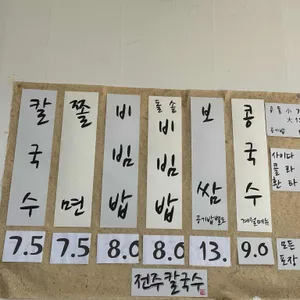 칼국수
쫄면
비빔밥
돌솥
비빔밥
보쌈
공기밥별도
콩국수
7.5
7.5
8.0
8.0
13.
9.0
사이다
콜라
환타
모든
포장
전주칼국수